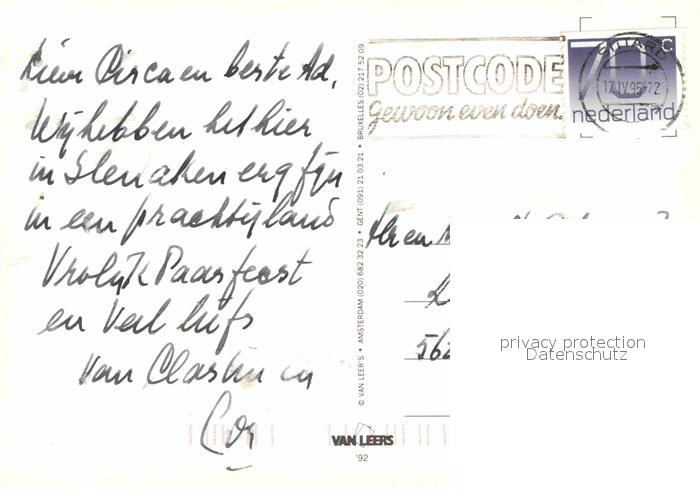 Lieve Pisca en beste Ad,
Wij hebben het hier
in Slenaken erg fijn
in een prachtig land
Vrolijk Paasfeest
en veel liefs
Van en
Cor
© VAN LEER'S • AMSTERDAM (020) 682 32 23 • GENT (091) 21 03 21 • BRUXELLES (02) 217 52 09
POSTCODE
Gewoon even doen.
70 c
nederland
17.IV.95
Hr en
562
privacy protection
Datenschutz
VAN LEER'S
'92